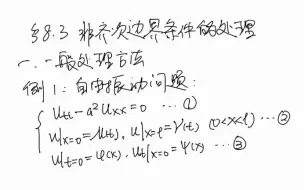 §8.3 非齐次边界条件的处理
一. 一般处理方法
例1: 自由振动问题:
u_tt - a²u_xx = 0 … ①
u|x=0 = μ(t), u|x=ℓ = ν(t) (0<x<ℓ) … ②
u|t=0 = φ(x), u_t|x=0 = ψ(x) … ③